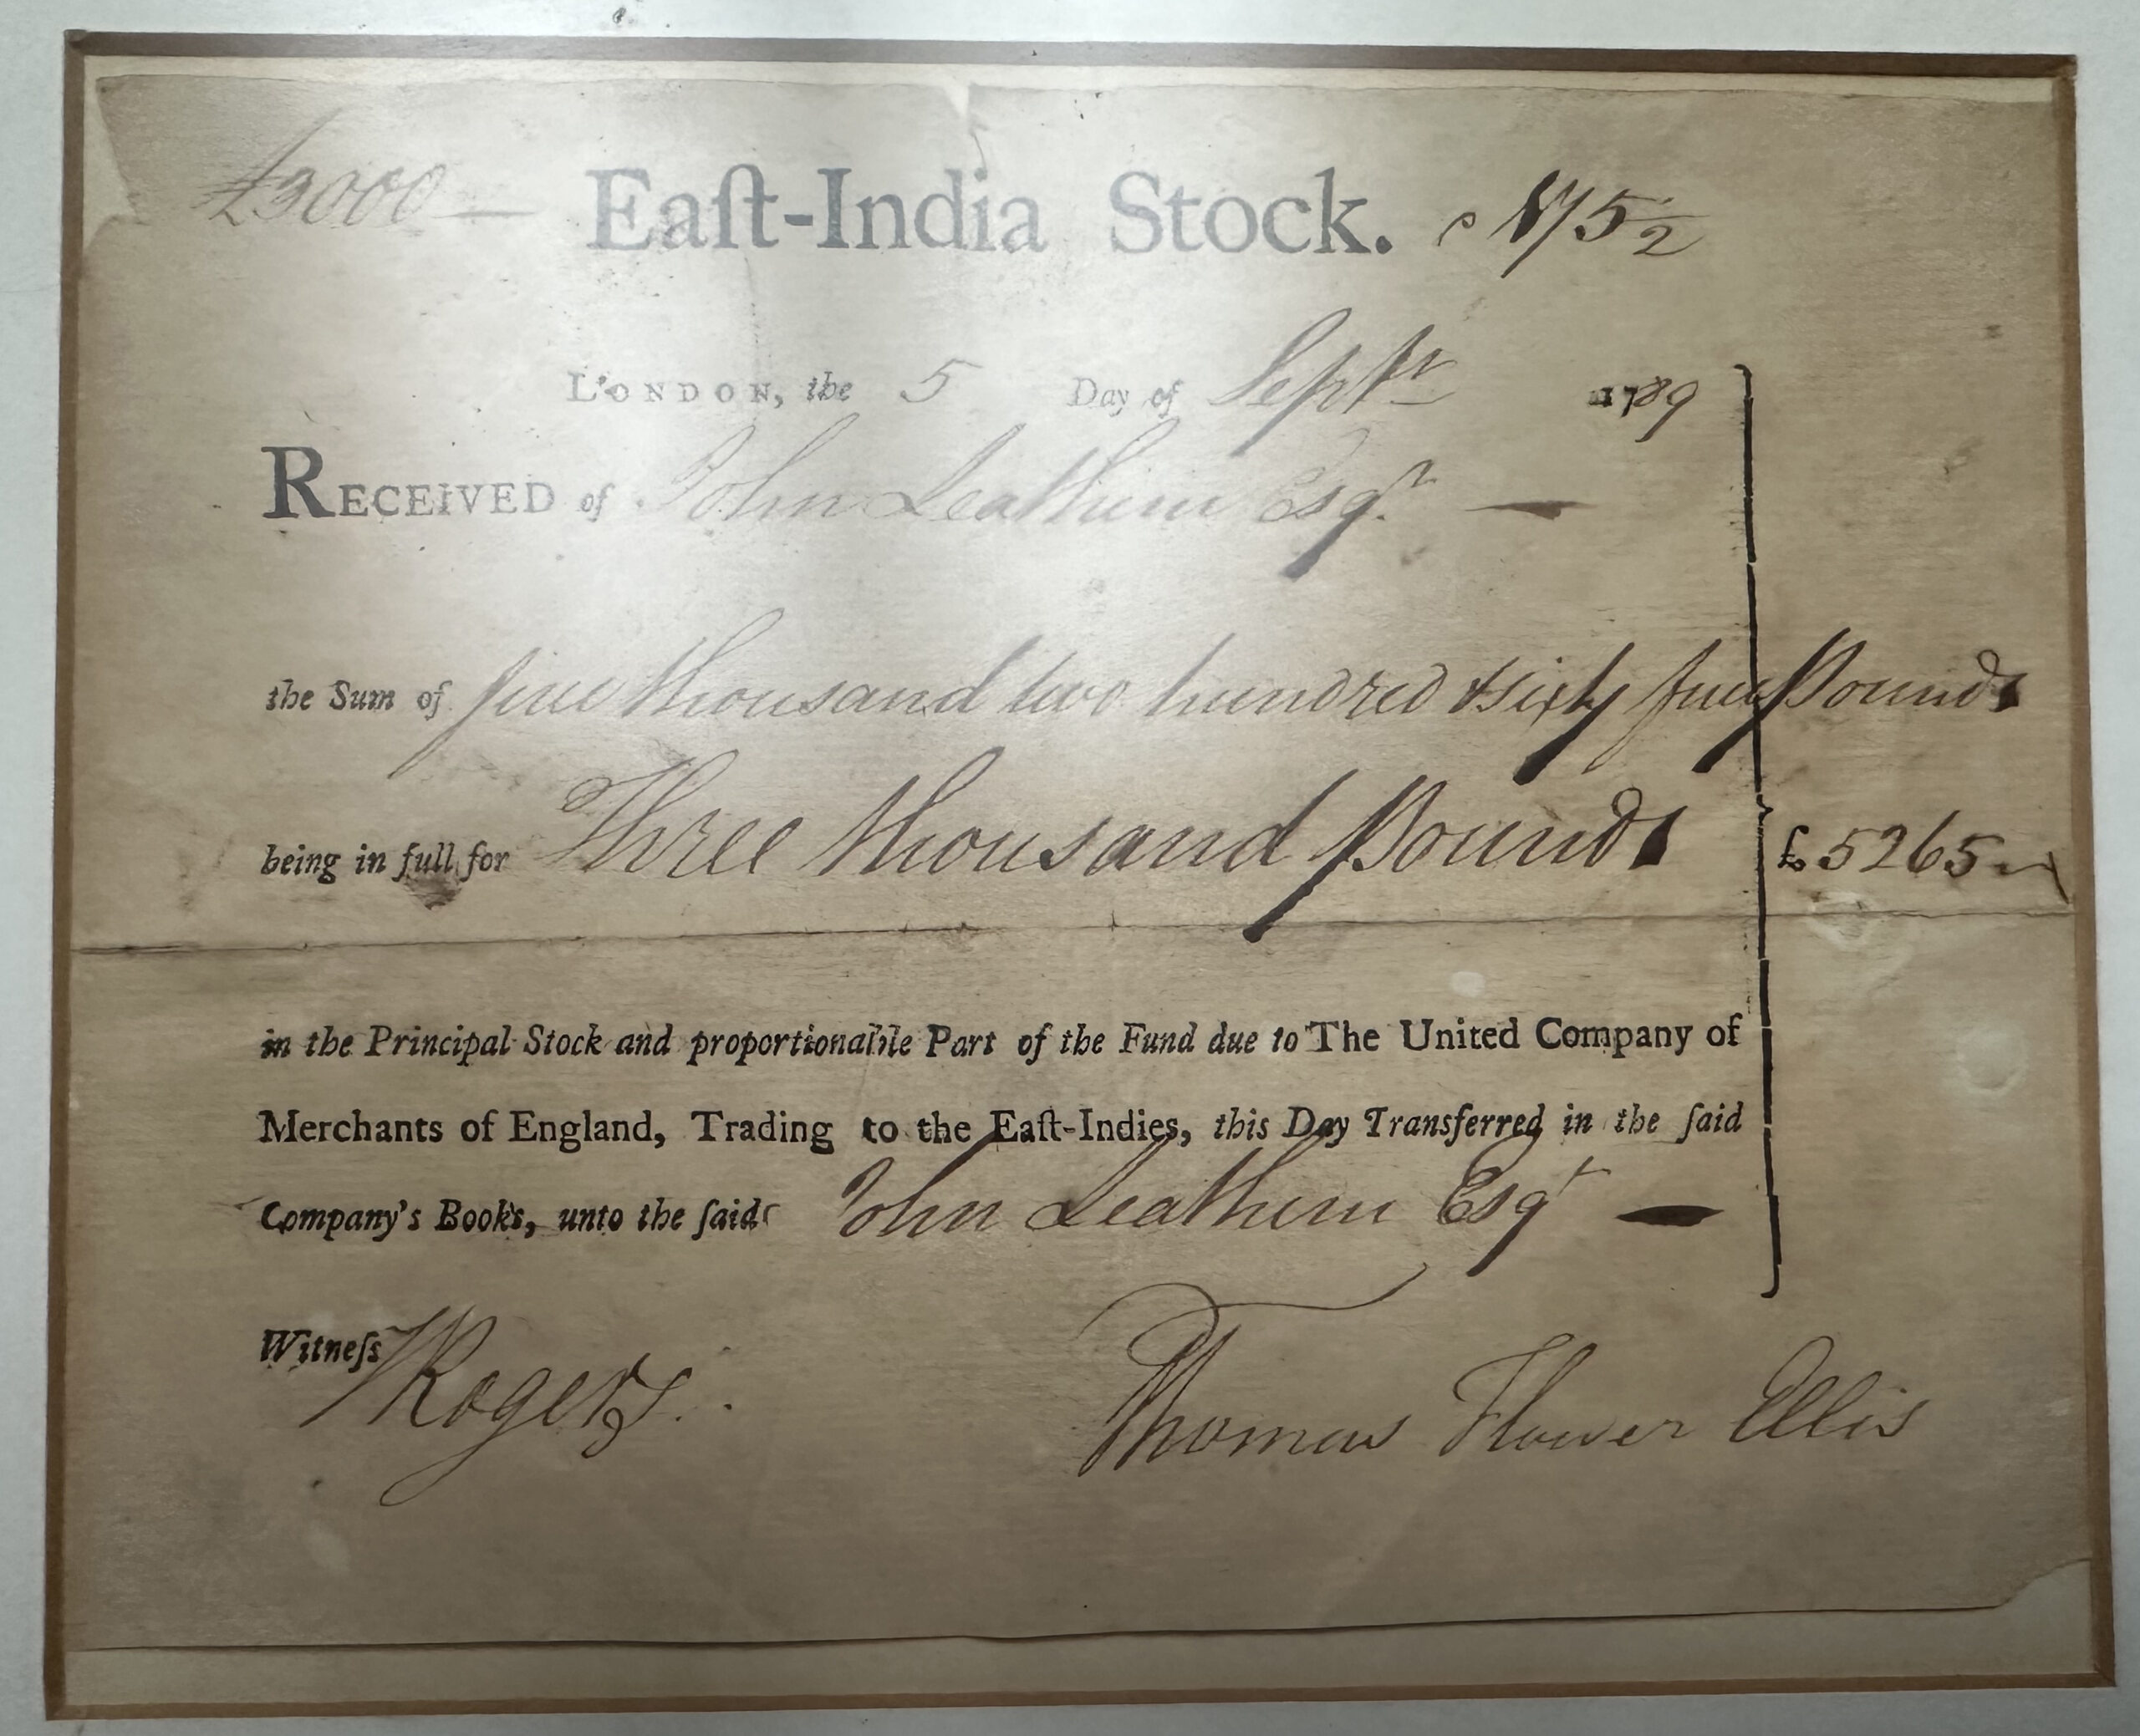 £3000 — Eaſt-India Stock. @ 175½
London, the 5 Day of Septr 1789
Received of John Leathem Esqr. —
the Sum of five thousand two hundred & sixty five Pounds
being in full for Three thousand Pounds £5265
in the Principal Stock and proportionable Part of the Fund due to The United Company of
Merchants of England, Trading to the Eaſt-Indies, this Day Transferred in the ſaid
Company's Books, unto the ſaid John Leathem Esqr —
Witneſs Rogers Thomas Flower Ellis